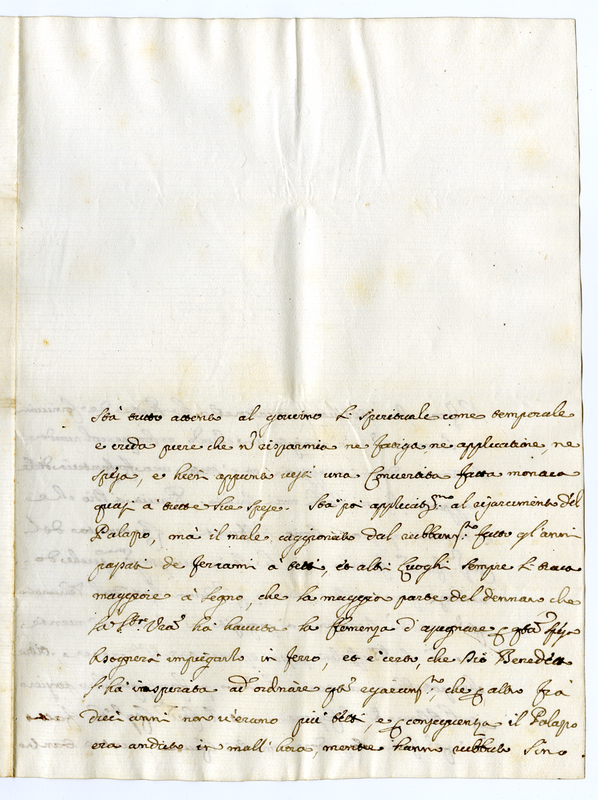 Stà tutto attento al governo sì spirituale come temporale
e creda pure che nõ risparmia ne fatiga, ne applicatione, ne
spesa, e hieri appunto vestì una Convertita fatta monaca
quasi à tutte sue spese. Sta poi applicatis.mo al risarcimento del
Palazzo, mà il male caggionato dal rubbam.to fatto gl'anni
passati de ferrami à tetti, et altri luoghi sempre si trova
maggiore à segno, che la maggior parte del denaro che
la S.tà V.ra hà havuto la clemenza d'assegnare
bisognerà impiegarlo in ferro, et è certo, che Dio Benedetto
l'hà inspirata ad ordinare che altro frà
dieci anni non v'erano più tetti, e conseguenza il Palazzo
era andato in mall'hora, mentre hanno rubbato sino